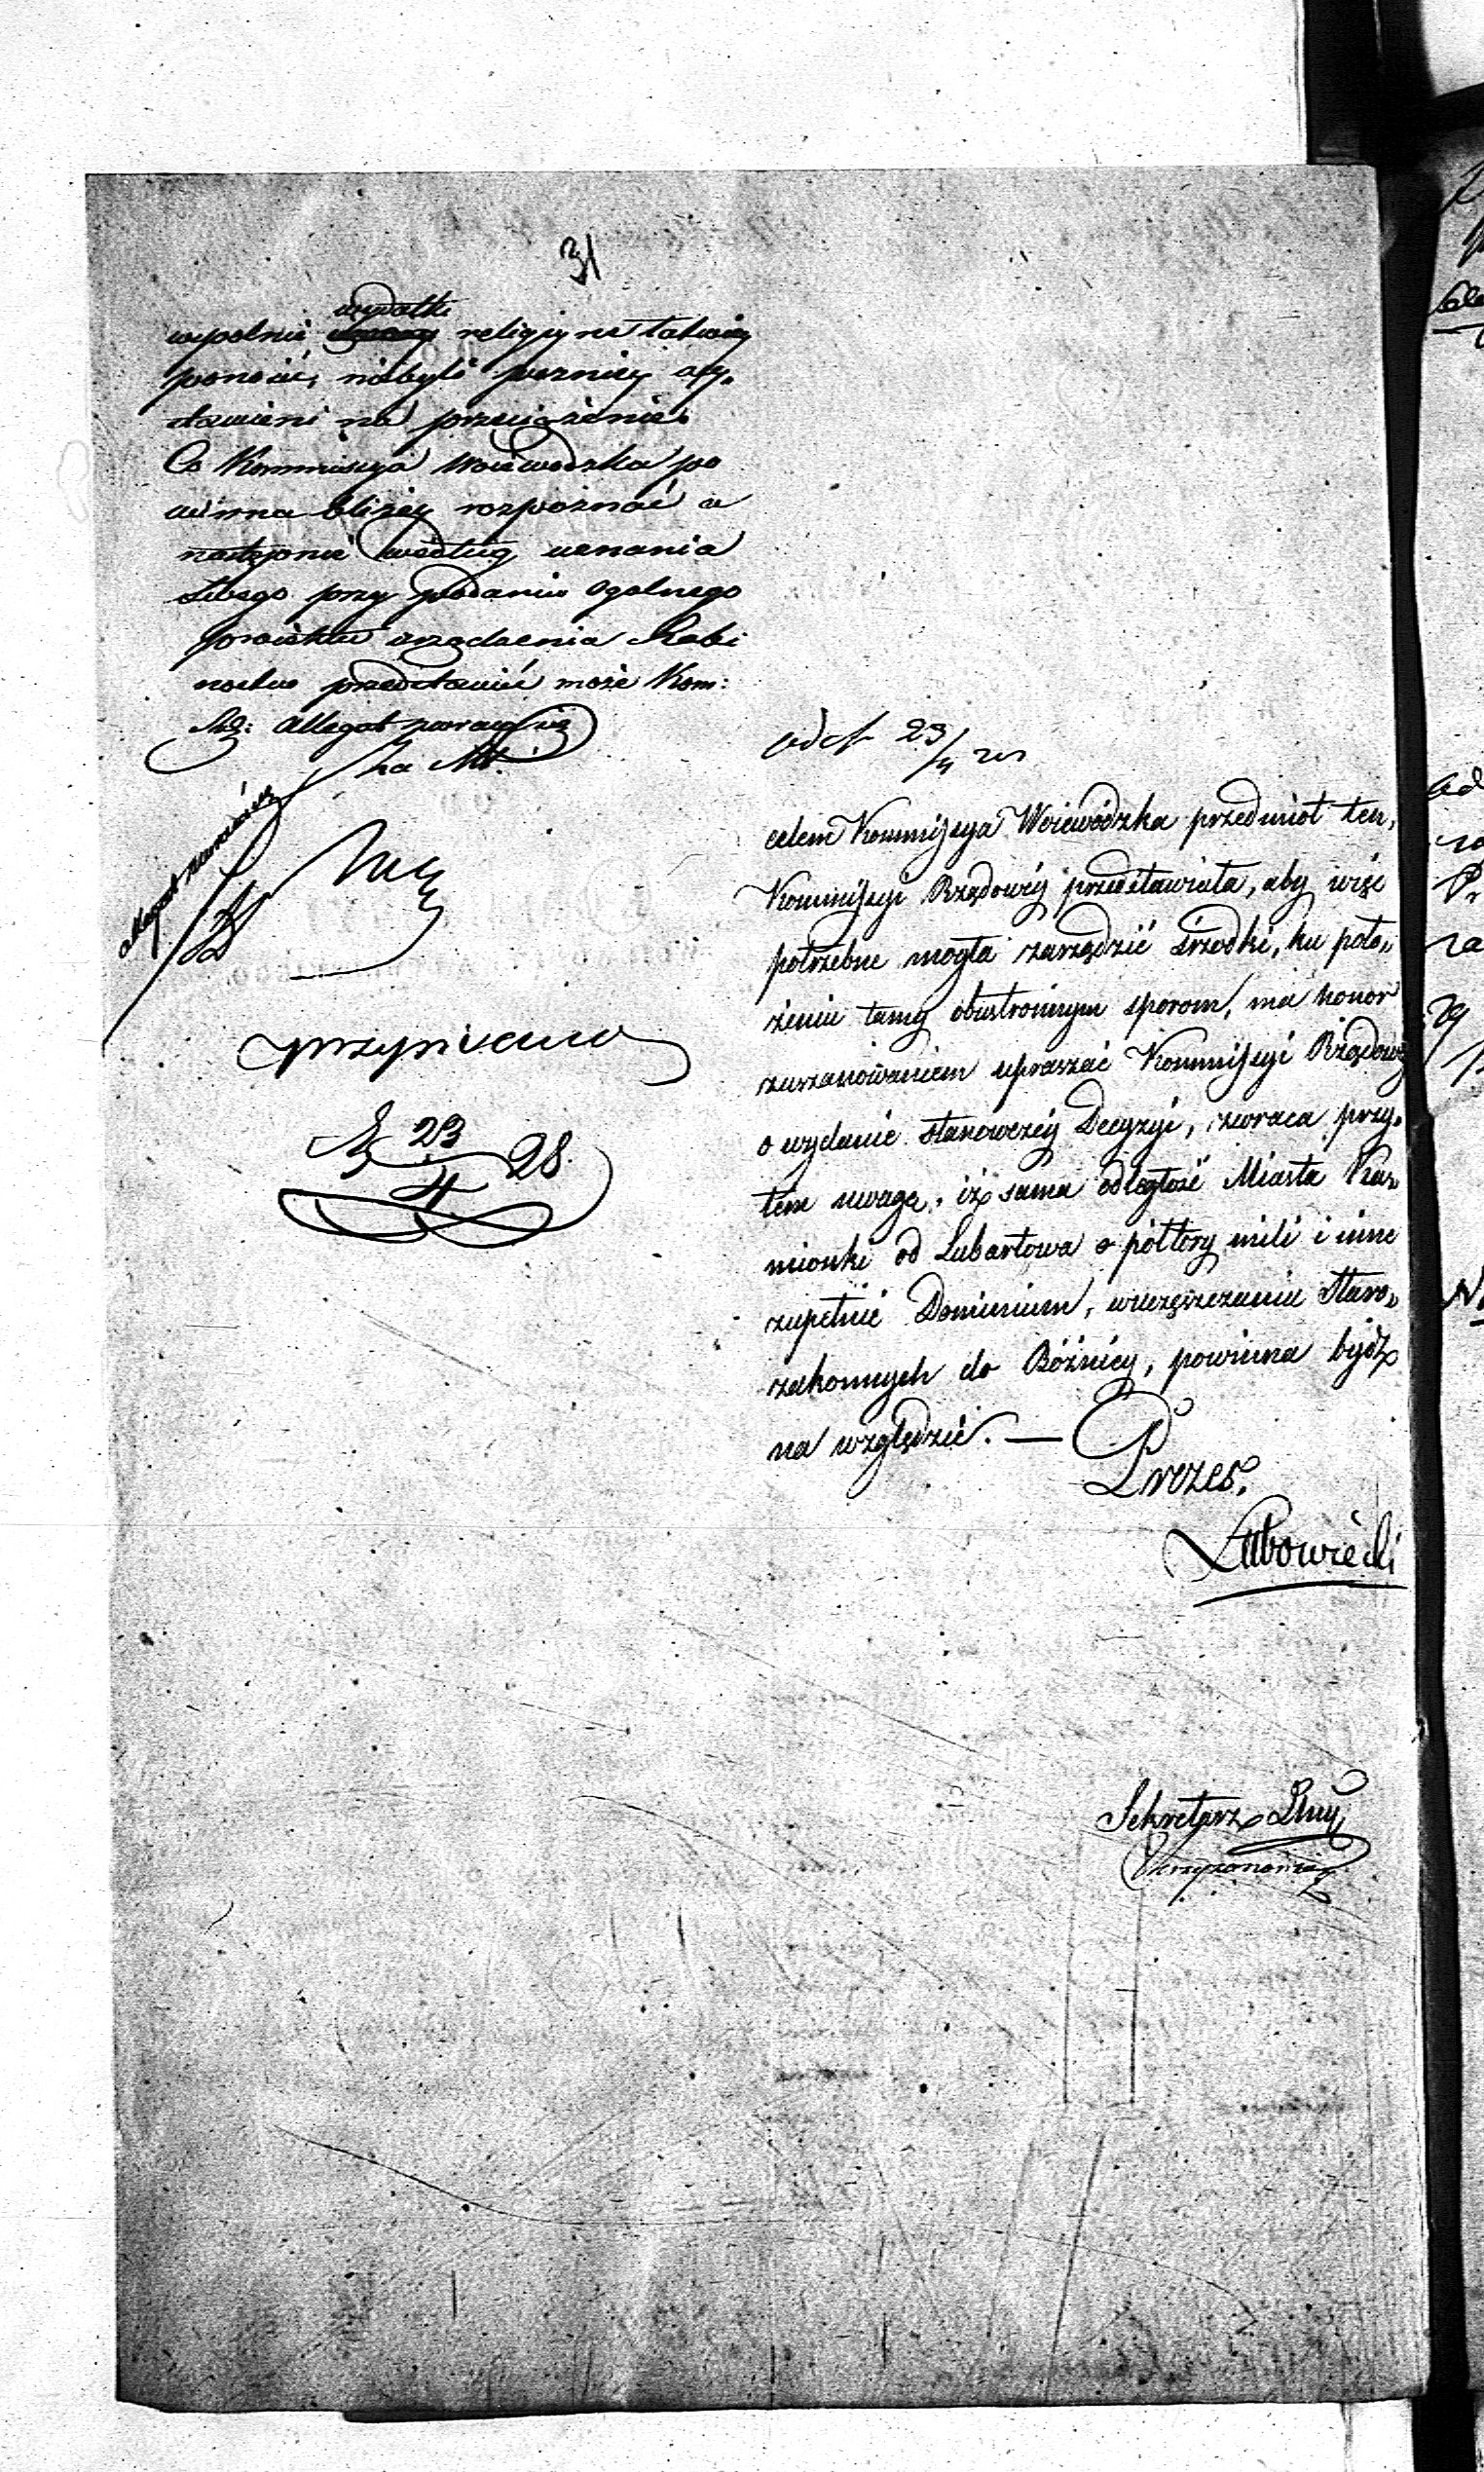 31
wydatki
wspolnie religijne łatwiej
ponosić, niebyli poźniej
stawieni na przeciążenie.
Co Kommissyia Woiewodzka po
winna bliżey rozpoznać a
następnie według uznania
swego przy podaniu ogolnego
proiektu urządzenia Rabi
nostwa przedstawić może Kom:
Allegat zwraca się
Za M.
przypisano
23/4 28.
odcf 23/4
celem Kommissya Woiewódzka przedmiot ten,
Kommissyi Rządowéy przedstawiała, aby więc
potrzebne mogła zarządzić śrzodki, ku poło„
żeniu tamy obustronnym sporom, ma honor
zuszanowaniem upraszać Kommissyi Rządowéy
o wydanie stanowczéy Decyzyi, zwraca przy„
tem uwagę, iż sama odległość Miasta Ka„
mionki od Lubartowa o półtory mili i inne
zupełnie Dominium, wuczęszczaniu Staro„
zakonnych do Bóżnicy, powinna bydź
na względzie. —
Prezes.
Lubowiecki
Sekretarz Jlny